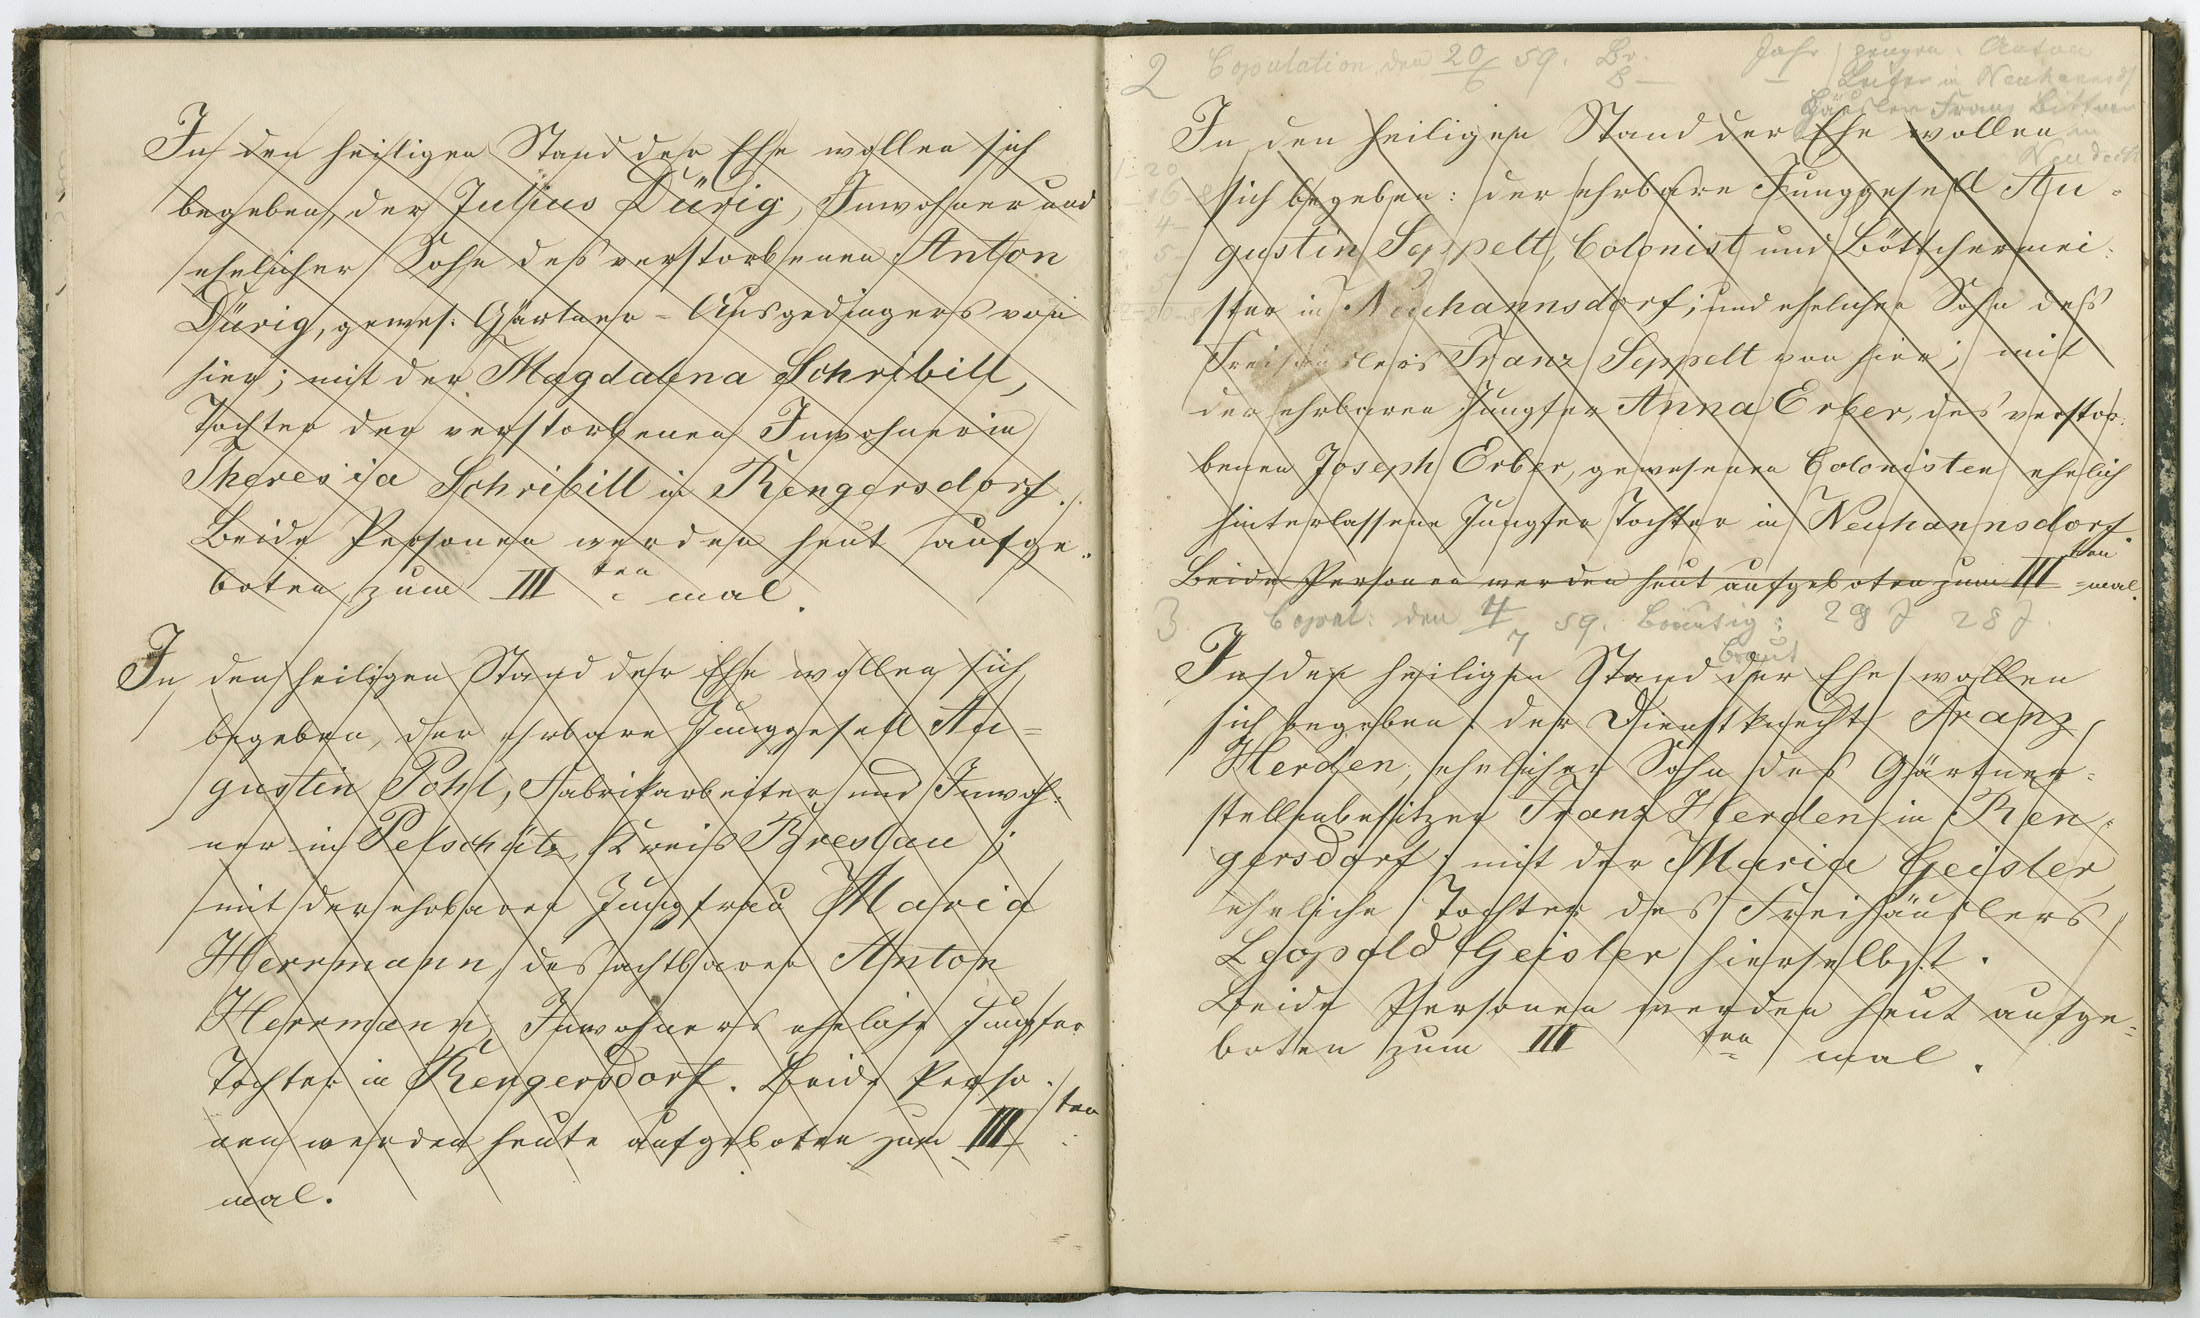 In den heiligen Stand der Ehe wollen sich
begeben, der Julius Dürig, Inwohner und
ehelicher Sohn des verstorbenen Anton
Dürig, gewes: Gärtner-Ausgedingers von
hier; mit der Magdalena Schribill,
Tochter der verstorbenen Inwohnerin
Theresia Schribill in Rengersdorf.
Beide Personen werden heut aufge-
boten zum III ten mal.
In den heiligen Stand der Ehe wollen sich
begeben, der ehrbare Junggesell Au=
gustin Pohl, Fabrikarbeiter und Inwoh-
ner in Pelschütz, Kreis Breslau;
mit der ehrbaren Jungfrau Maria
Herrmann, des achtbaren Anton
Herrmann, Inwohners eheliche Jungfer
Tochter in Rengersdorf. Beide Perso-
nen werden heute aufgeboten zum III ten
mal.
2 Copulation den 20/6 59. Br. Jahr Zeugen: Anton
8 — in Neuhannsdf
Häusler Franz Bittner
in
Neudeck
In den heiligen Stand der Ehe wollen
sich begeben: der ehrbare Junggesell Au=
gustin Seppelt, Colonist und Böttchermei-
ster in Neuhannsdorf; und ehelicher Sohn des
Freihäuslers Franz Seppelt von hier; mit
der ehrbaren Jungfer Anna Erber, des verstor-
benen Joseph Erber, gewesenen Colonisten ehelich
hinterlassene Jungfer Tochter in Neuhannsdorf.
Beide Personen werden heut aufgeboten zum III ten =mal.
3. Copul: den 4/7 59. Bräutig: 29 J 28 J.
Braut
In den heiligen Stand der Ehe wollen
sich begeben: der Dienstknecht Franz
Herden, ehelicher Sohn des Gärtner=
stellenbesitzer Franz Herden in Ren-
gersdorf; mit der Maria Geisler
eheliche Tochter des Freihäuslers
Leopold Geisler hierselbst.
Beide Personen werden heut aufge=
boten zum III ten mal.